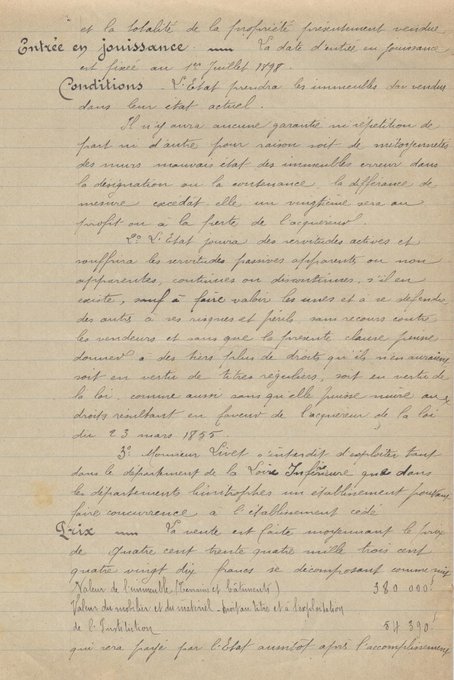 et la totalité de la propriété présentement vendue
Entrée en jouissance. La date d'entrée en jouissance
est fixée au 1er Juillet 1898.
Conditions L'Etat prendra les immeubles vendus
dans leur état actuel.
Il n'y aura aucune garantie ni répétition de
part ni d'autre pour raison soit de mitoyennetés
des murs mauvais état des immeubles erreur dans
la désignation ou la contenance, la différence de
mesure excédat-elle un vingtième sera au
profit ou à la perte de l'acquéreur.
2o L'Etat jouira des servitudes actives et
souffrira les servitudes passives apparentes ou non
apparentes, continues ou discontinues, s'il en
existe, sauf à faire valoir les unes et à se défendre
des autres à ses risques et périls, sans recours contre
les vendeurs et sans que la présente clause puisse
donner à des tiers plus de droits qu'ils n'en auraient
soit en vertu de titres réguliers, soit en vertu de
la loi, comme aussi sans qu'elle puisse nuire aux
droits résultant en faveur de l'acquéreur de la loi
du 23 mars 1855.
3o Monsieur Livet s'interdit d'exploiter tant
dans le départment de la Loire Inférieure que dans
les départements limitrophes un établissement pouvant
faire concurrence à l'établissement cédé
Prix La vente est faite moyennant le prix
de quatre cent trente quatre mille trois cent
quatre vingt dix francs se décomposant comme suit
Valeur de l'immeuble (Terrains et bâtiments) 380 000f
Valeur du mobilier et du matériel - Droit au titre et à l'exploitation
de l'Institution 54 390f
qui sera payé par l'Etat aussitôt après l'accomplissement